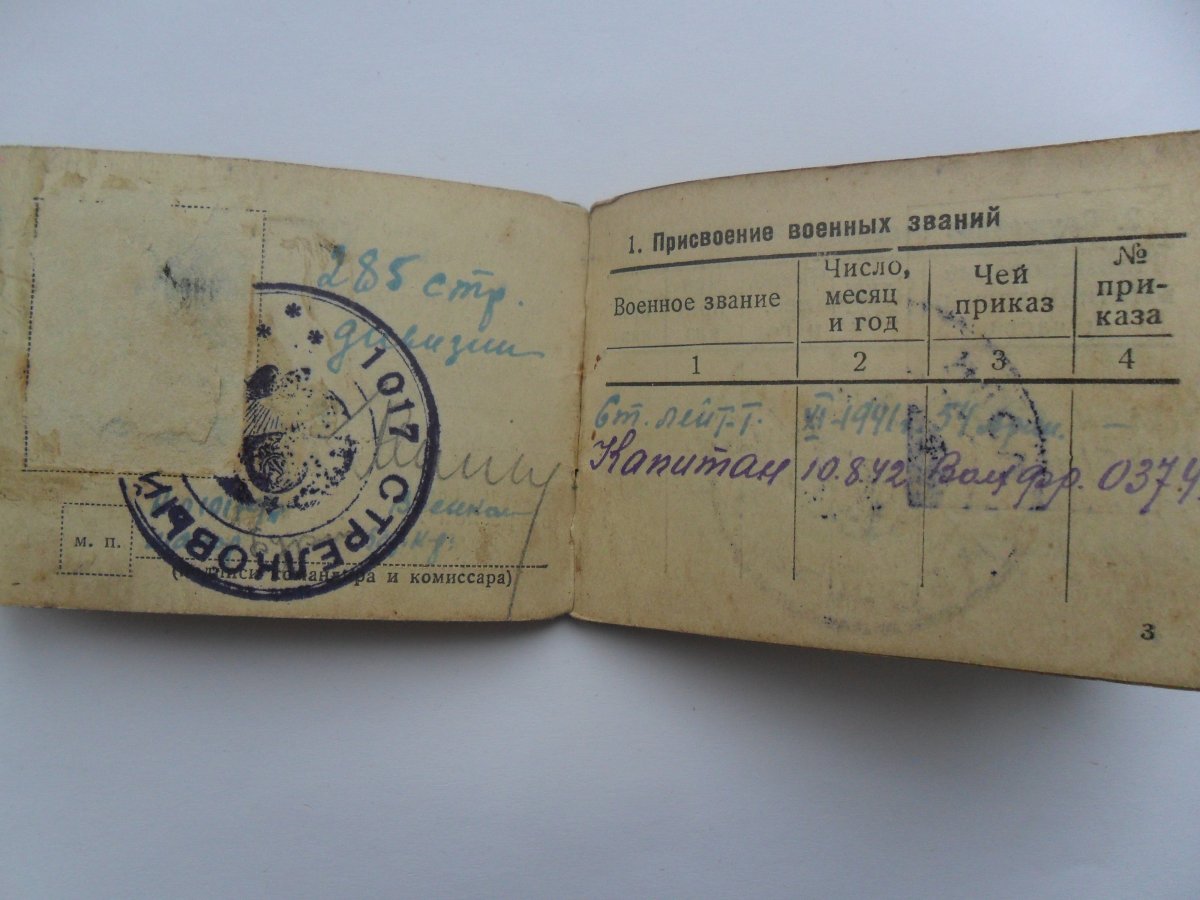 285 стр.
дивизии
1017 СТРЕЛКОВЫЙ
М. П.
(Подписи командира и комиссара)
1. Присвоение военных званий
Военное звание
Число, месяц и год
Чей приказ
№ при-каза
1 2 3 4
Ст. лейт. XI-1941г. 54 арм. —
Капитан 10.8.42 Волх фр. 0374
3